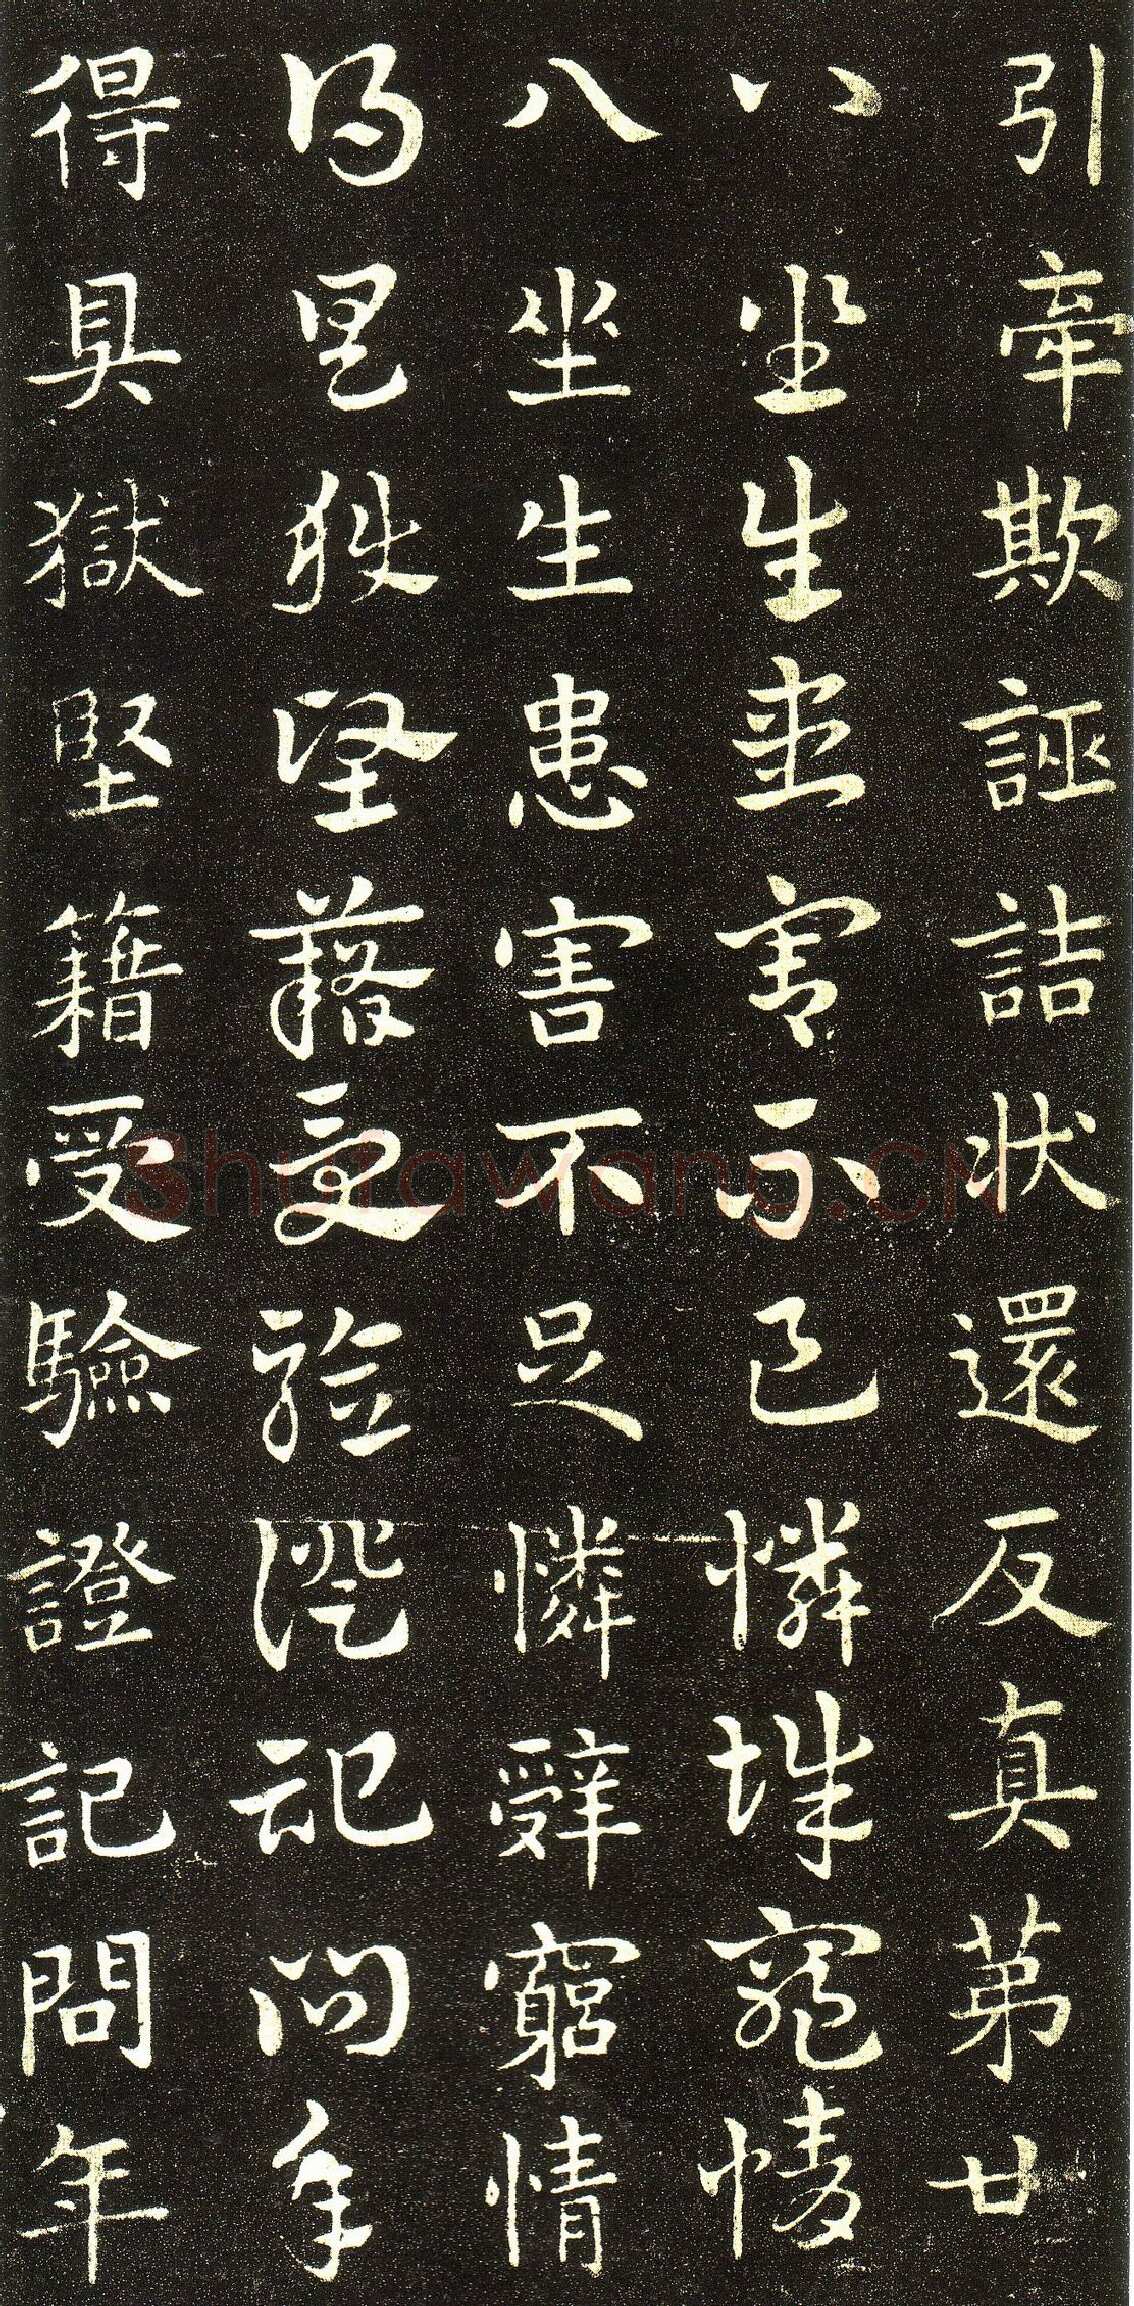 引牽欺誣詰狀還反真第廿
八坐生患害不足憐辭窮情
八坐生患害不足憐辭窮情
得具獄堅藉受驗證記問年
得具獄堅籍受驗證記問年
Shufawang.CN